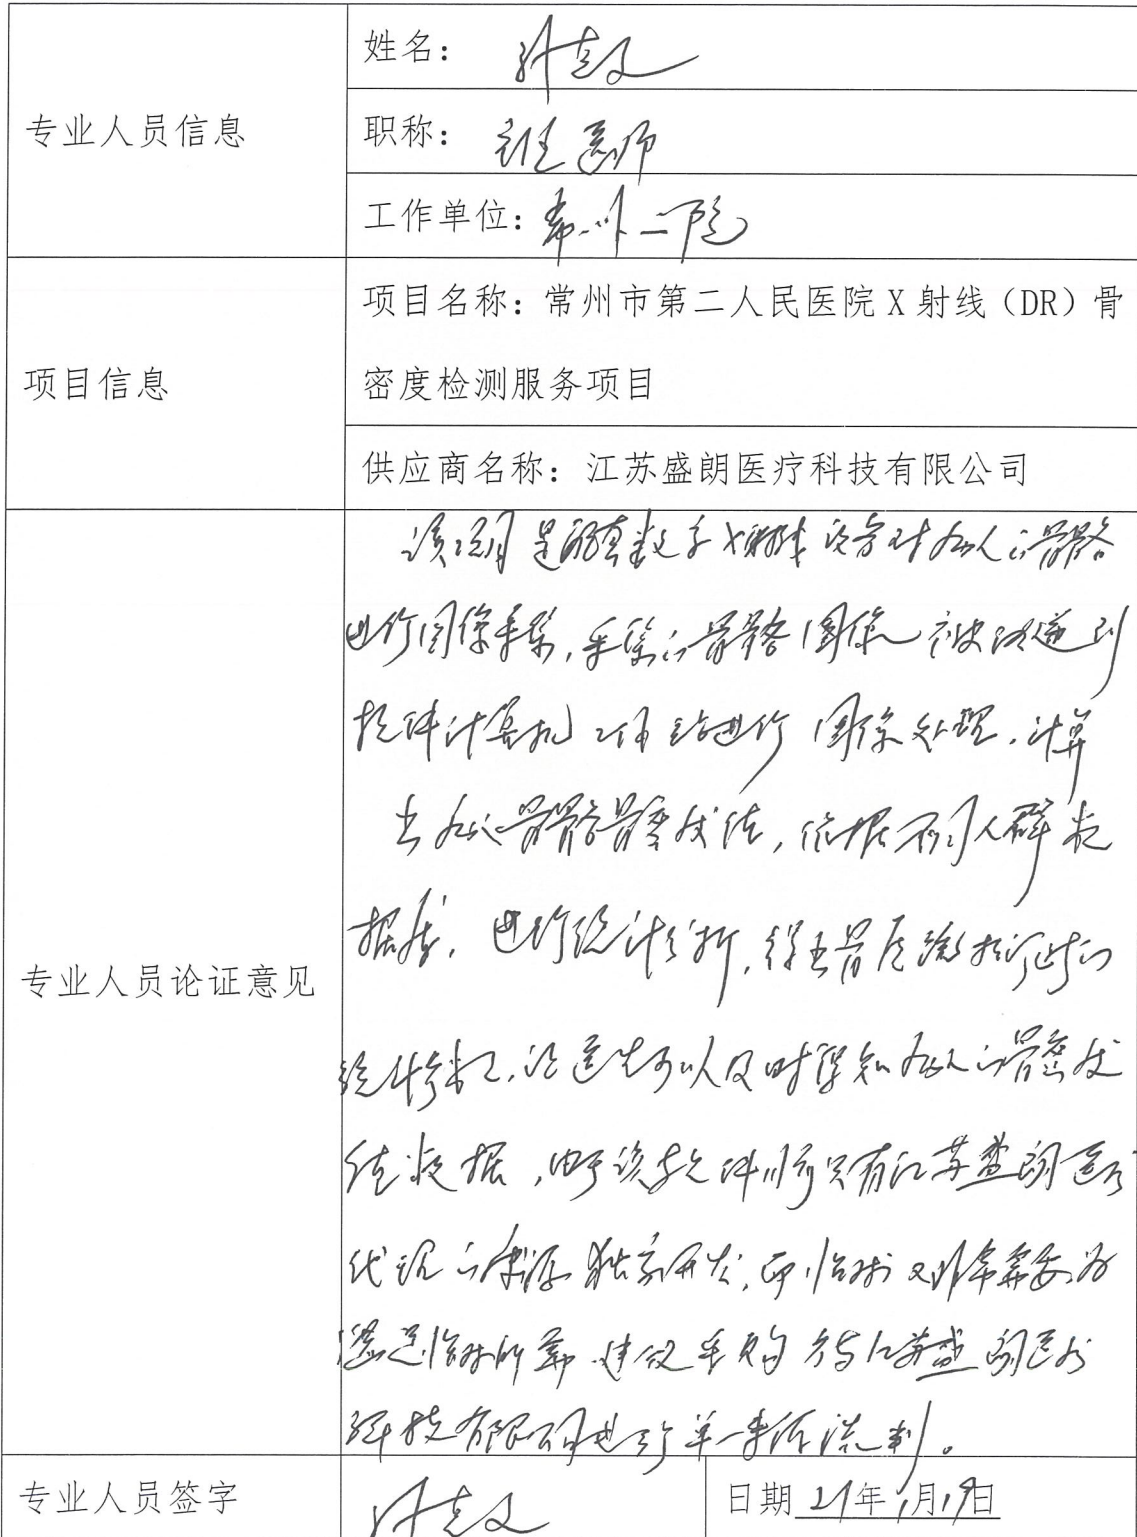 专业人员信息
姓名：
职称：主任医师
工作单位：常州二院
项目信息
项目名称：常州市第二人民医院 X 射线（DR）骨
密度检测服务项目
供应商名称：江苏盛朗医疗科技有限公司
专业人员论证意见
该项目是配套数字X射线设备对病人的骨骼
进行图像采集，采集的骨骼图像被传递到
软件计算机工作站进行图像处理，计算
出病人骨骼骨密度值，依据不同人群数
据库，进行统计分析，得出骨质疏松诊断的
统计参数，让医生可以及时得知病人的骨密度
值数据，由于该软件目前只有江苏盛朗医疗
代理的 独家开发，而临床又非常需要，为
满足临床所需，建议采购 与江苏盛朗医疗
科技有限公司进行单一来源谈判。
专业人员签字
日期 21年1月19日